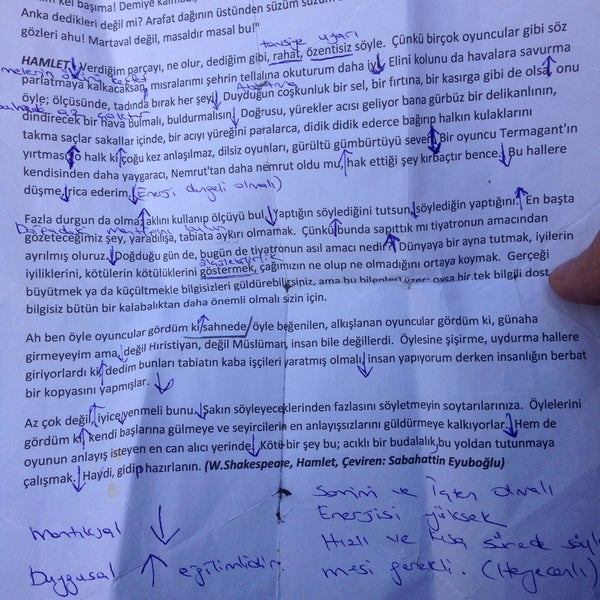 kim kel başıma! Demiye
Anka dedikleri değil mi? Arafat dağının üstünden süzüm süzüm
gözleri ahu! Martaval değil, masaldır masal bu!"
tavsiye uyarı
HAMLET Verdiğim parçayı, ne olur, dediğim gibi, rahat, özentisiz söyle. Çünkü birçok oyuncular gibi söz
parlatmaya kalkacaksan, mısralarımı şehrin tellalına okuturum daha iyi. Elini kolunu da havalara savurma
öyle; ölçüsünde, tadında bırak her şeyi. Duyduğun coşkunluk bir sel, bir fırtına, bir kasırga gibi de olsa, onu
dindirecek bir hava bulmalı, buldurmalısın. Doğrusu, yürekler acısı geliyor bana gürbüz bir delikanlının,
takma saçlar sakallar içinde, bir acıyı yüreğini paralarca, didik didik ederce bağırıp halkın kulaklarını
yırtması; o halk ki çoğu kez anlaşılmaz, dilsiz oyunları, gürültü gümbürtüyü sever. Bir oyuncu Termagant'ın
kendisinden daha yaygaracı, Nemrut'tan daha nemrut oldu mu, hak ettiği şey kırbaçtır bence. Bu hallere
düşme, rica ederim. (Enerji dengeli olmalı)
Fazla durgun da olma, aklını kullanıp ölçüyü bul. Yaptığın söylediğini tutsun, söylediğin yaptığını. En başta
gözeteceğimiz şey, yaradılışa, tabiata aykırı olmamak. Çünkü bunda sapıttık mı tiyatronun amacından
ayrılmış oluruz. Doğduğu gün de, bugün de tiyatronun asıl amacı nedir? Dünyaya bir ayna tutmak, iyilerin
iyiliklerini, kötülerin kötülüklerini göstermek, çağımızın ne olup ne olmadığını ortaya koymak. Gerçeği
büyütmek ya da küçültmekle bilgisizleri güldürebilirsiniz, ama bu bilenleri üzer; oysa bir tek bilgili dost
bilgisiz bütün bir kalabalıktan daha önemli olmalı sizin için.
Ah ben öyle oyuncular gördüm ki sahnede, öyle beğenilen, alkışlanan oyuncular gördüm ki, günaha
girmeyeyim ama, değil Hıristiyan, değil Müslüman, insan bile değillerdi. Öylesine şişirme, uydurma hallere
giriyorlardı ki, dedim bunları tabiatın kaba işçileri yaratmış olmalı, insan yapıyorum derken insanlığın berbat
bir kopyasını yapmışlar.
Az çok değil, iyice yenmeli bunu. Sakın söyleyeceklerinden fazlasını söyletmeyin soytarılarınıza. Öylelerini
gördüm ki kendi başlarına gülmeye ve seyircilerin en anlayışsızlarını güldürmeye kalkıyorlar. Hem de
oyunun anlayış isteyen en can alıcı yerinde. Kötü bir şey bu; acıklı bir budalalık bu yoldan tutunmaya
çalışmak. Haydi, gidip hazırlanın. (W.Shakespeare, Hamlet, Çeviren: Sabahattin Eyuboğlu)
Mantıksal ↓
Duygusal ↑ eğilimlidir.
Samimi ve İçten olmalı
Enerjisi yüksek
Hızlı ve kısa sürede söyle
mesi gerekli. (Heyecanlı)